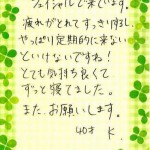 フェイシャルで来ています。
疲れがとれてすっきりするし
やっぱり定期的に来ない
といけないですね!
とても気持ち良くて
ずっと寝てました。
また、お願いします。
40才 K.